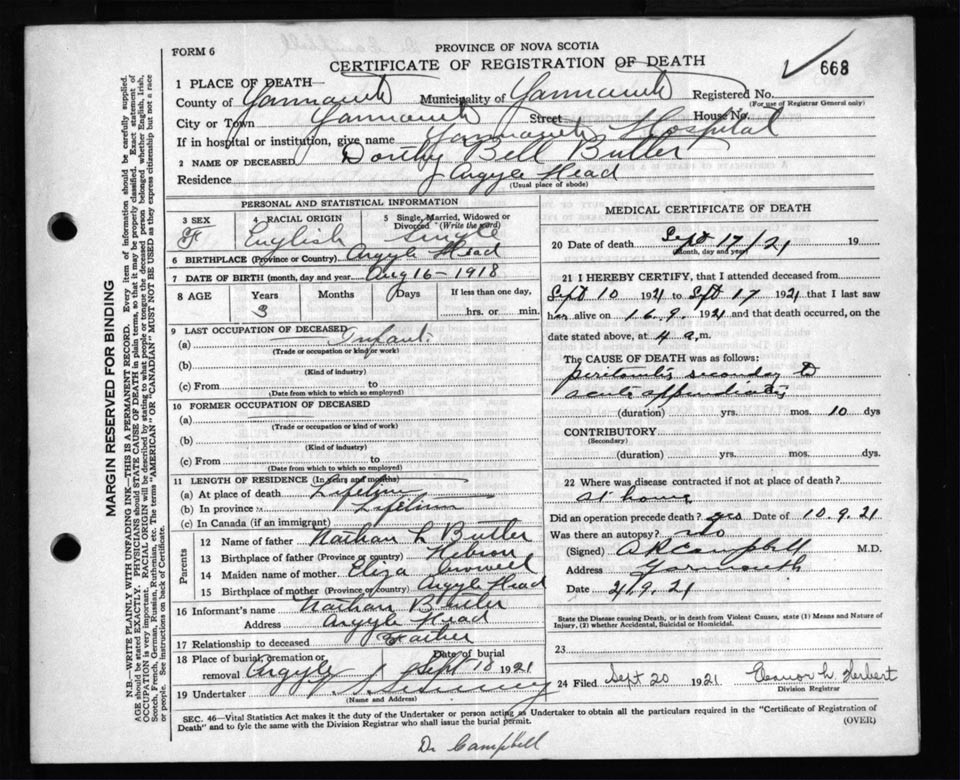 FORM 6
PROVINCE OF NOVA SCOTIA
CERTIFICATE OF REGISTRATION OF DEATH
668
1 PLACE OF DEATH—
County of Yarmouth Municipality of Yarmouth Registered No.
(For use of Registrar General only)
City or Town Yarmouth Street House No.
If in hospital or institution, give name Yarmouth Hospital
2 NAME OF DECEASED Dorthy Bell Butler
Residence Argyle Head
(Usual place of abode)
PERSONAL AND STATISTICAL INFORMATION
3 SEX F
4 RACIAL ORIGIN English
5 Single, Married, Widowed or Divorced (Write the word) Single
6 BIRTHPLACE (Province or Country) Argyle Head
7 DATE OF BIRTH (month, day and year) Aug 16 - 1918
8 AGE Years Months Days If less than one day,
3 hrs. or min.
9 LAST OCCUPATION OF DECEASED
(a) Infant
(Trade or occupation or kind of work)
(b)
(Kind of industry)
(c) From to
(Date from which to which so employed)
10 FORMER OCCUPATION OF DECEASED
(a)
(Trade or occupation or kind of work)
(b)
(Kind of industry)
(c) From to
(Date from which to which so employed)
11 LENGTH OF RESIDENCE (In years and months)
(a) At place of death Lifetime
(b) In province Lifetime
(c) In Canada (if an immigrant)
Parents
12 Name of father Nathan L Butler
13 Birthplace of father (Province or country) Hebron
14 Maiden name of mother Eliza Crowell
15 Birthplace of mother (Province or country) Argyle Head
16 Informant's name Nathan Butler
Address Argyle Head
17 Relationship to deceased Father
18 Place of burial, cremation or removal Argyle Date of burial Sept 18 1921
19 Undertaker
(Name and Address)
MEDICAL CERTIFICATE OF DEATH
20 Date of death Sept 17/21 19
(Month, day and year)
21 I HEREBY CERTIFY, that I attended deceased from
Sept 10 1921 to Sept 17 1921 that I last saw
her alive on 16.9. 1921 and that death occurred, on
date stated above, at 4 a.m.
The CAUSE OF DEATH was as follows:
peritonitis secondary to
acute appendicitis
(duration) yrs. mos. 10 dys
CONTRIBUTORY
(Secondary)
(duration) yrs. mos. dys.
22 Where was disease contracted if not at place of death?
at home
Did an operation precede death? yes Date of 10.9.21
Was there an autopsy? no
(Signed) Campbell M.D.
Address Yarmouth
Date 21.9.21
State the Disease causing Death, or in death from Violent Causes, state (1) Means and Nature of Injury, (2) whether Accidental, Suicidal or Homicidal.
23
24 Filed Sept 20 1921 Eleanor L. Herbert
Division Registrar
SEC. 46—Vital Statistics Act makes it the duty of the Undertaker or person acting as Undertaker to obtain all the particulars required in the "Certificate of Registration of
Death" and to fyle the same with the Division Registrar who shall issue the burial permit.
(OVER)
Dr Campbell
MARGIN RESERVED FOR BINDING
N.B.—WRITE PLAINLY WITH UNFADING INK—THIS IS A PERMANENT RECORD. Every item of information should be carefully supplied.
AGE should be stated EXACTLY. PHYSICIANS should STATE CAUSE OF DEATH in plain terms, so that it may be properly classified. Exact statement of
OCCUPATION is very important. RACIAL ORIGIN will be described by stating to what people or tongue the deceased person belonged, whether English, Irish,
Scotch, French, German, Russian, Ruthenian, etc. The terms "AMERICAN" OR "CANADIAN" MUST NOT BE USED as they express citizenship but not a race
or people. See instructions on back of Certificate.